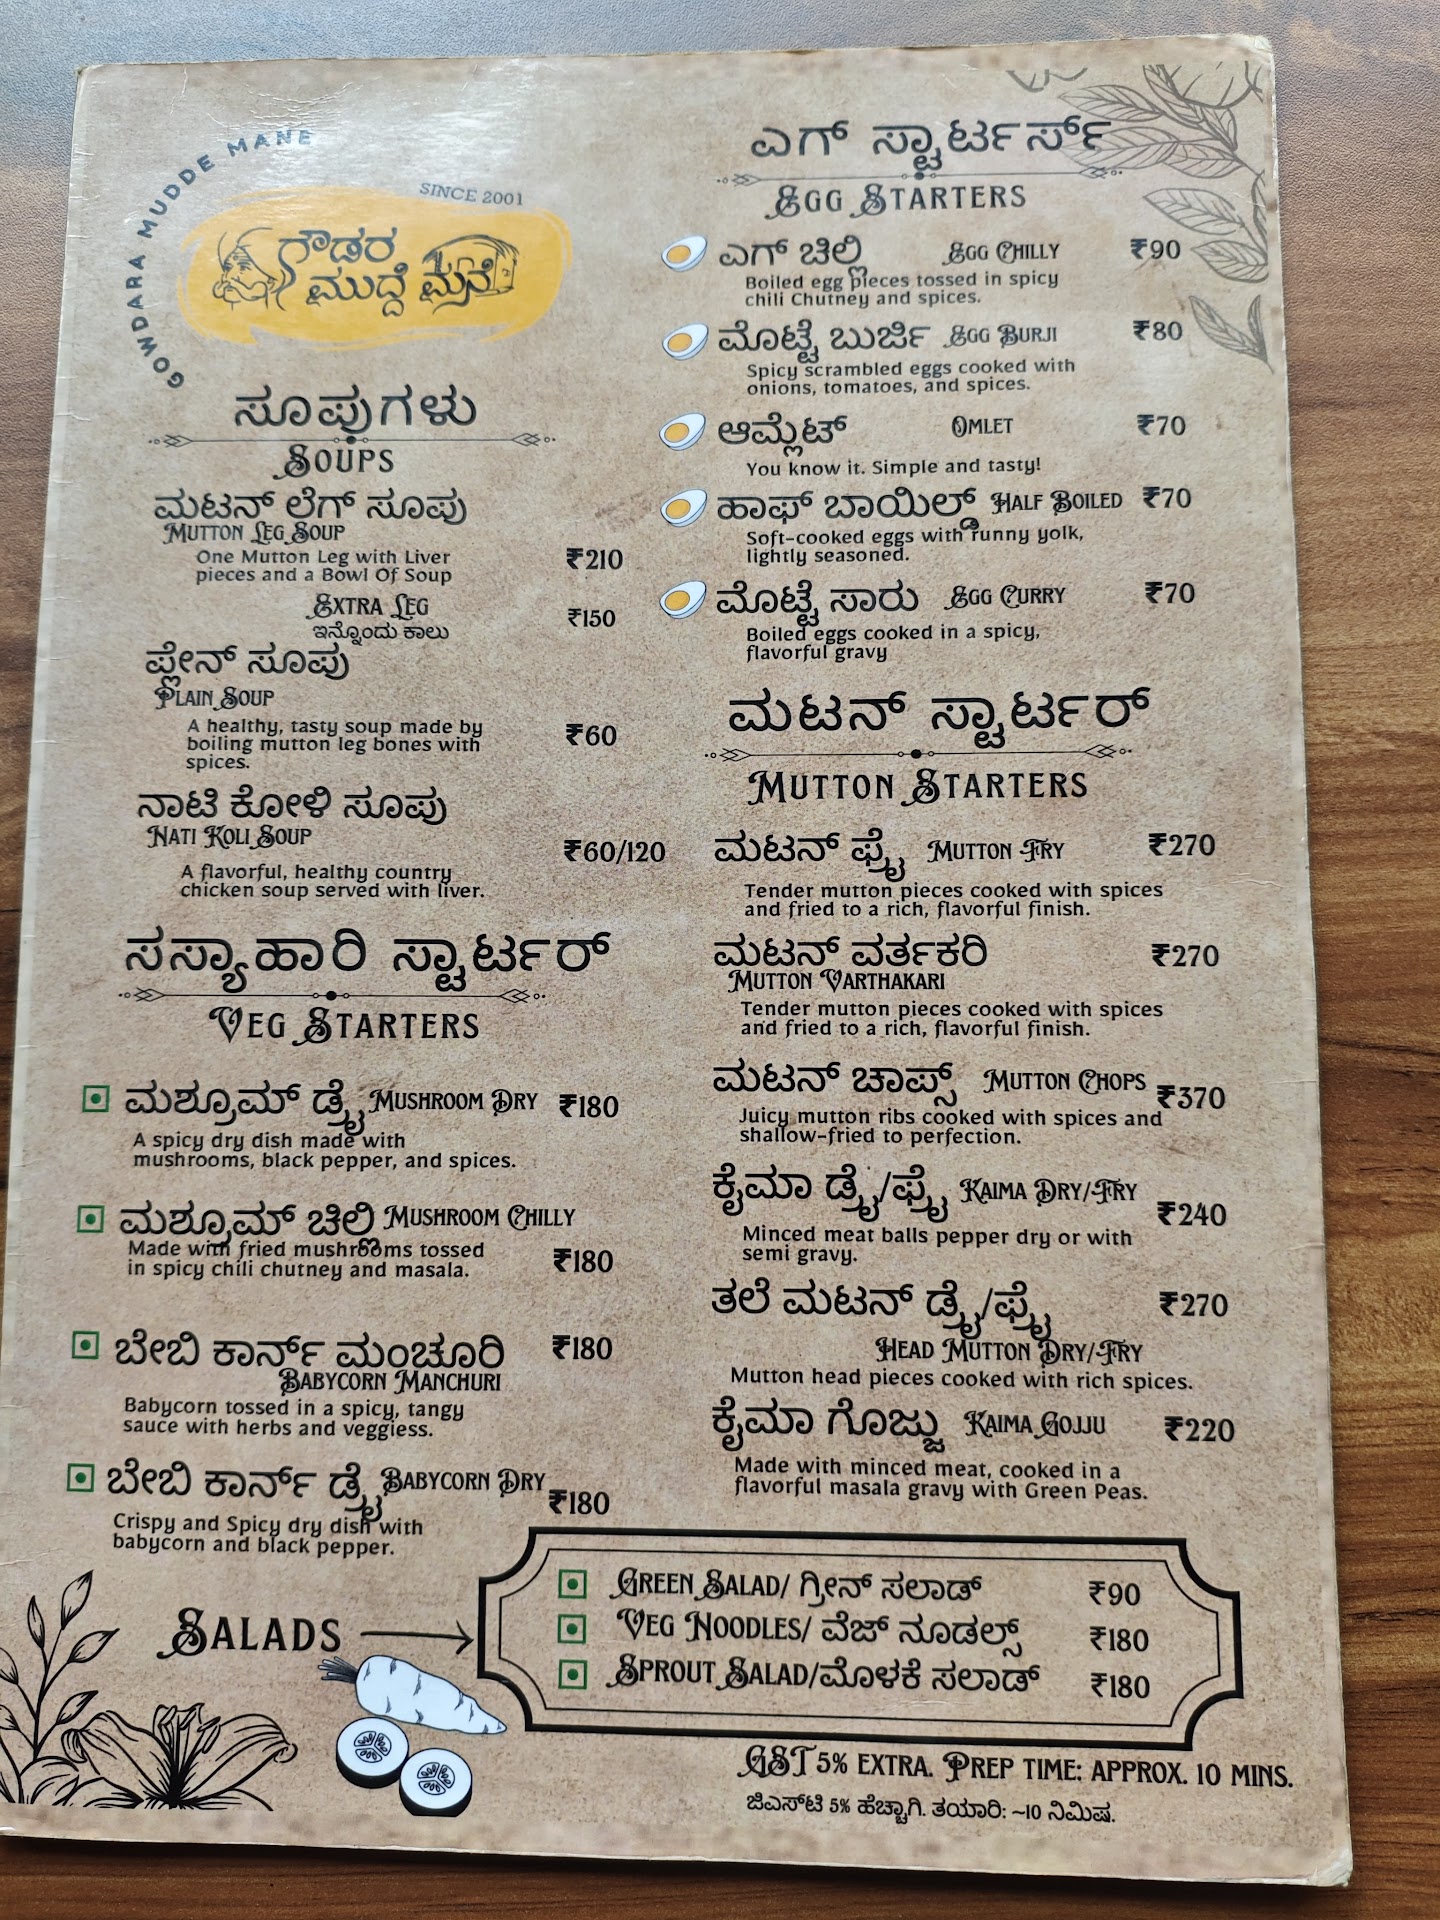 GOWDARA MUDDE MANE
SINCE 2001
ಗೌಡರ
ಮುದ್ದೆ ಮನೆ
ಸೂಪುಗಳು
SOUPS
ಮಟನ್ ಲೆಗ್ ಸೂಪು
MUTTON LEG SOUP
One Mutton Leg with Liver
pieces and a Bowl Of Soup
₹210
EXTRA LEG
ಇನ್ನೊಂದು ಕಾಲು
₹150
ಪ್ಲೇನ್ ಸೂಪು
PLAIN SOUP
A healthy, tasty soup made by
boiling mutton leg bones with
spices.
₹60
ನಾಟಿ ಕೋಳಿ ಸೂಪು
NATI KOLI SOUP
₹60/120
A flavorful, healthy country
chicken soup served with liver.
ಸಸ್ಯಾಹಾರಿ ಸ್ಟಾರ್ಟರ್
VEG STARTERS
ಮಶ್ರೂಮ್ ಡ್ರೈ MUSHROOM DRY ₹180
A spicy dry dish made with
mushrooms, black pepper, and spices.
ಮಶ್ರೂಮ್ ಚಿಲ್ಲಿ MUSHROOM CHILLY
Made with fried mushrooms tossed
in spicy chili chutney and masala.
₹180
ಬೇಬಿ ಕಾರ್ನ್ ಮಂಚೂರಿ ₹180
BABYCORN MANCHURI
Babycorn tossed in a spicy, tangy
sauce with herbs and veggiess.
ಬೇಬಿ ಕಾರ್ನ್ ಡ್ರೈ BABYCORN DRY ₹180
Crispy and Spicy dry dish with
babycorn and black pepper.
ಎಗ್ ಸ್ಟಾರ್ಟರ್ಸ್
EGG STARTERS
ಎಗ್ ಚಿಲ್ಲಿ EGG CHILLY ₹90
Boiled egg pieces tossed in spicy
chili Chutney and spices.
ಮೊಟ್ಟೆ ಬುರ್ಜಿ EGG BURJI ₹80
Spicy scrambled eggs cooked with
onions, tomatoes, and spices.
ಆಮ್ಲೆಟ್ OMLET ₹70
You know it. Simple and tasty!
ಹಾಫ್ ಬಾಯಿಲ್ಡ್ HALF BOILED ₹70
Soft-cooked eggs with runny yolk,
lightly seasoned.
ಮೊಟ್ಟೆ ಸಾರು EGG CURRY ₹70
Boiled eggs cooked in a spicy,
flavorful gravy
ಮಟನ್ ಸ್ಟಾರ್ಟರ್
MUTTON STARTERS
ಮಟನ್ ಫ್ರೈ MUTTON FRY ₹270
Tender mutton pieces cooked with spices
and fried to a rich, flavorful finish.
ಮಟನ್ ವರ್ತಕರಿ ₹270
MUTTON VARTHAKARI
Tender mutton pieces cooked with spices
and fried to a rich, flavorful finish.
ಮಟನ್ ಚಾಪ್ಸ್ MUTTON CHOPS ₹370
Juicy mutton ribs cooked with spices and
shallow-fried to perfection.
ಕೈಮಾ ಡ್ರೈ/ಫ್ರೈ KAIMA DRY/FRY ₹240
Minced meat balls pepper dry or with
semi gravy.
ತಲೆ ಮಟನ್ ಡ್ರೈ/ಫ್ರೈ ₹270
HEAD MUTTON DRY/FRY
Mutton head pieces cooked with rich spices.
ಕೈಮಾ ಗೊಜ್ಜು KAIMA GOJJU ₹220
Made with minced meat, cooked in a
flavorful masala gravy with Green Peas.
SALADS
GREEN SALAD/ ಗ್ರೀನ್ ಸಲಾಡ್ ₹90
VEG NOODLES/ ವೆಜ್ ನೂಡಲ್ಸ್ ₹180
SPROUT SALAD/ಮೊಳಕೆ ಸಲಾಡ್ ₹180
GST 5% EXTRA. PREP TIME: APPROX. 10 MINS.
ಜಿಎಸ್‌ಟಿ 5% ಹೆಚ್ಚಾಗಿ. ತಯಾರಿ: ~10 ನಿಮಿಷ.